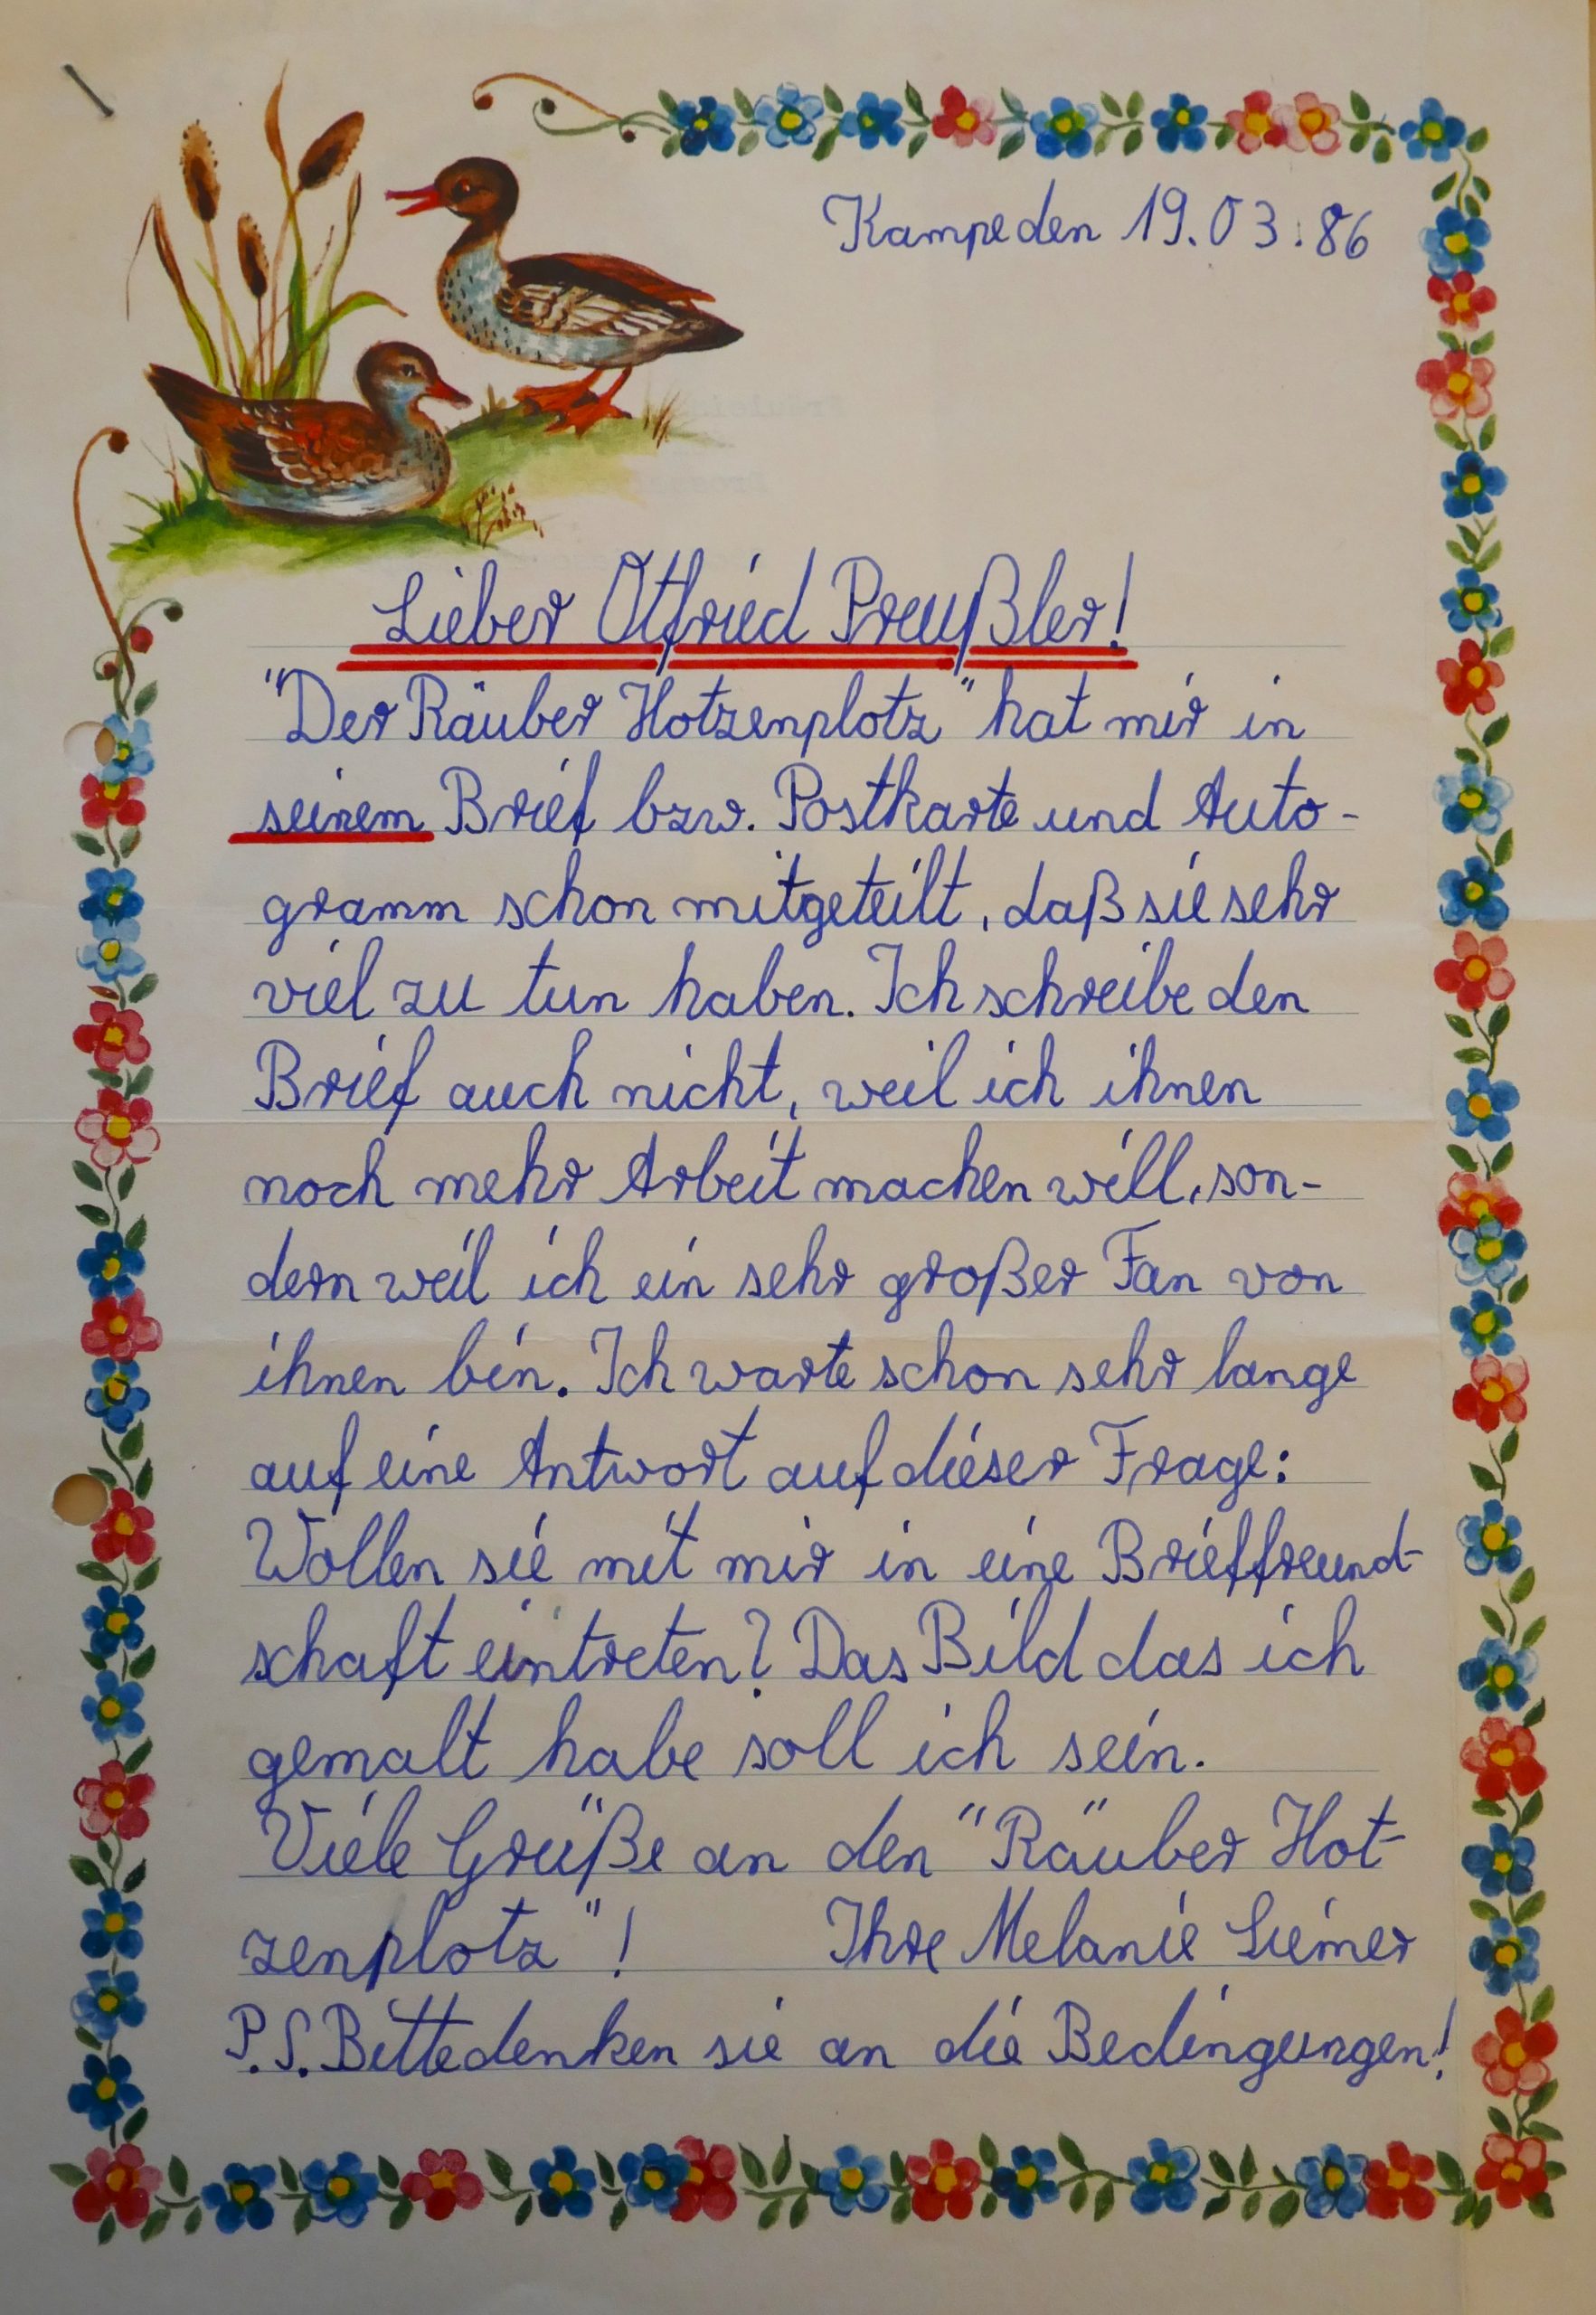 Kampe den 19.03.86
Lieber Otfried Preußler!
"Der Räuber Hotzenplotz" hat mir in
seinem Brief bzw. Postkarte und Auto-
gramm schon mitgeteilt, daß sie sehr
viel zu tun haben. Ich schreibe den
Brief auch nicht, weil ich ihnen
noch mehr Arbeit machen will, son-
dern weil ich ein sehr großer Fan von
ihnen bin. Ich warte schon sehr lange
auf eine Antwort auf dieser Frage:
Wollen sie mit mir in eine Brieffreund-
schaft eintreten? Das Bild das ich
gemalt habe soll ich sein.
Viele Grüße an den "Räuber Hot-
zenplotz"! Ihre Melanie Siemer
P.S. Bitte denken sie an die Bedingungen!